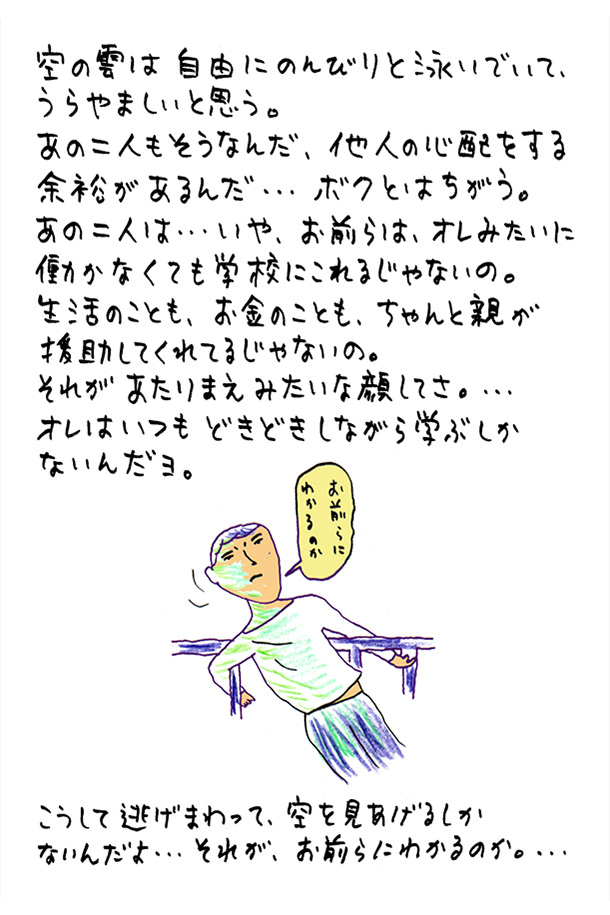 空の雲は自由にのんびりと泳いでいて、
うらやましいと思う。
あの二人もそうなんだ、他人の心配をする
余裕があるんだ… ボクとはちがう。
あの二人は…いや、お前らは、オレみたいに
働かなくても学校にこれるじゃないの。
生活のことも、お金のことも、ちゃんと親が
援助してくれてるじゃないの。
それがあたりまえみたいな顔してさ。…
オレはいつもどきどきしながら学ぶしか
ないんだヨ。
お前らに
わかるのか
こうして逃げまわって、空を見あげるしか
ないんだよ…それが、お前らにわかるのか。…